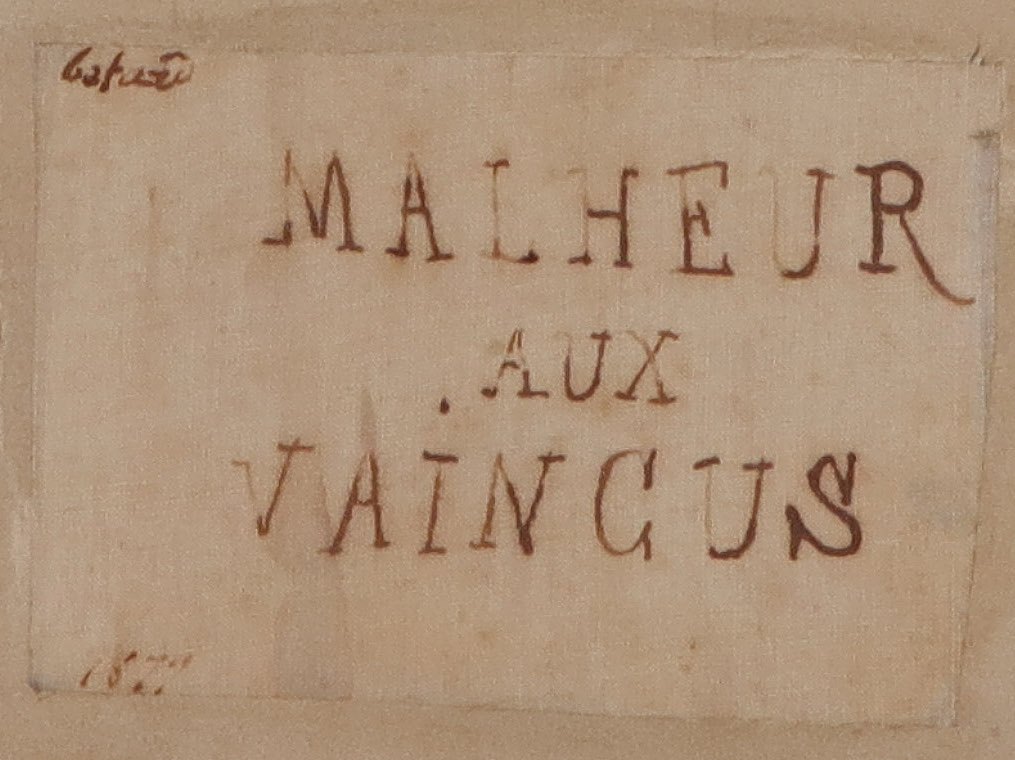 MALHEUR
AUX
VAINCUS